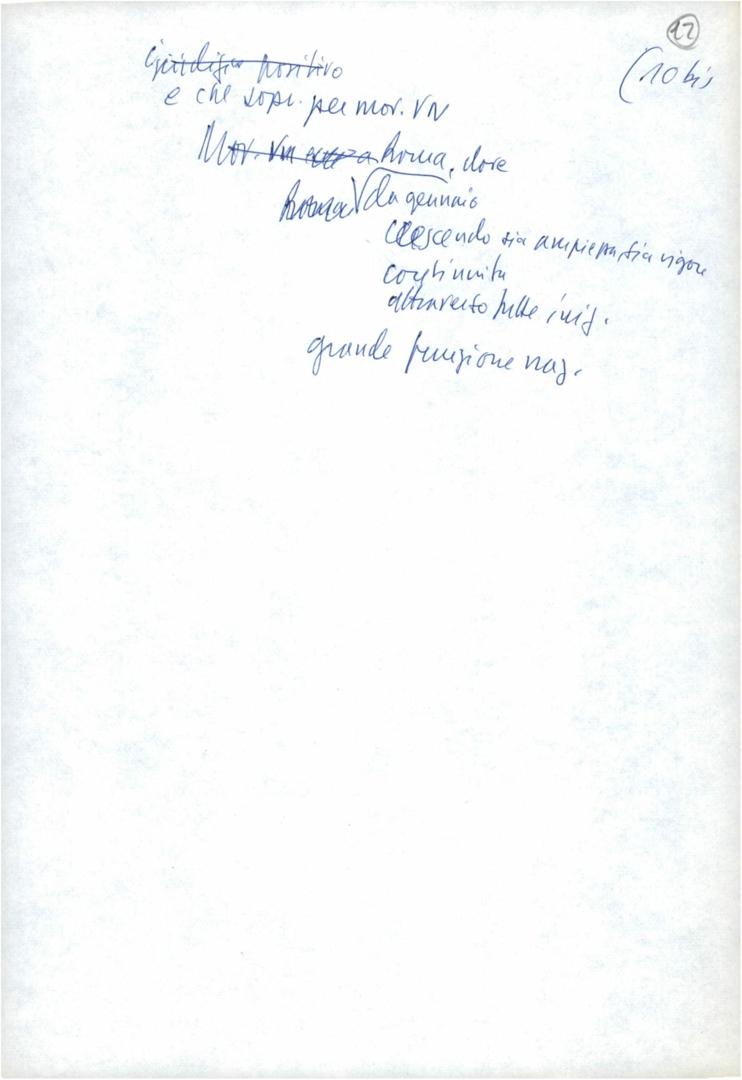 17
(10 bis
giudizio positivo
e che sopr. per mov. VN
Mov. VN a Roma, dove
Roma da gennaio
crescendo sia ampiezza, sia vigore
continuità
attraverso tutte iniz.
grande funzione naz.